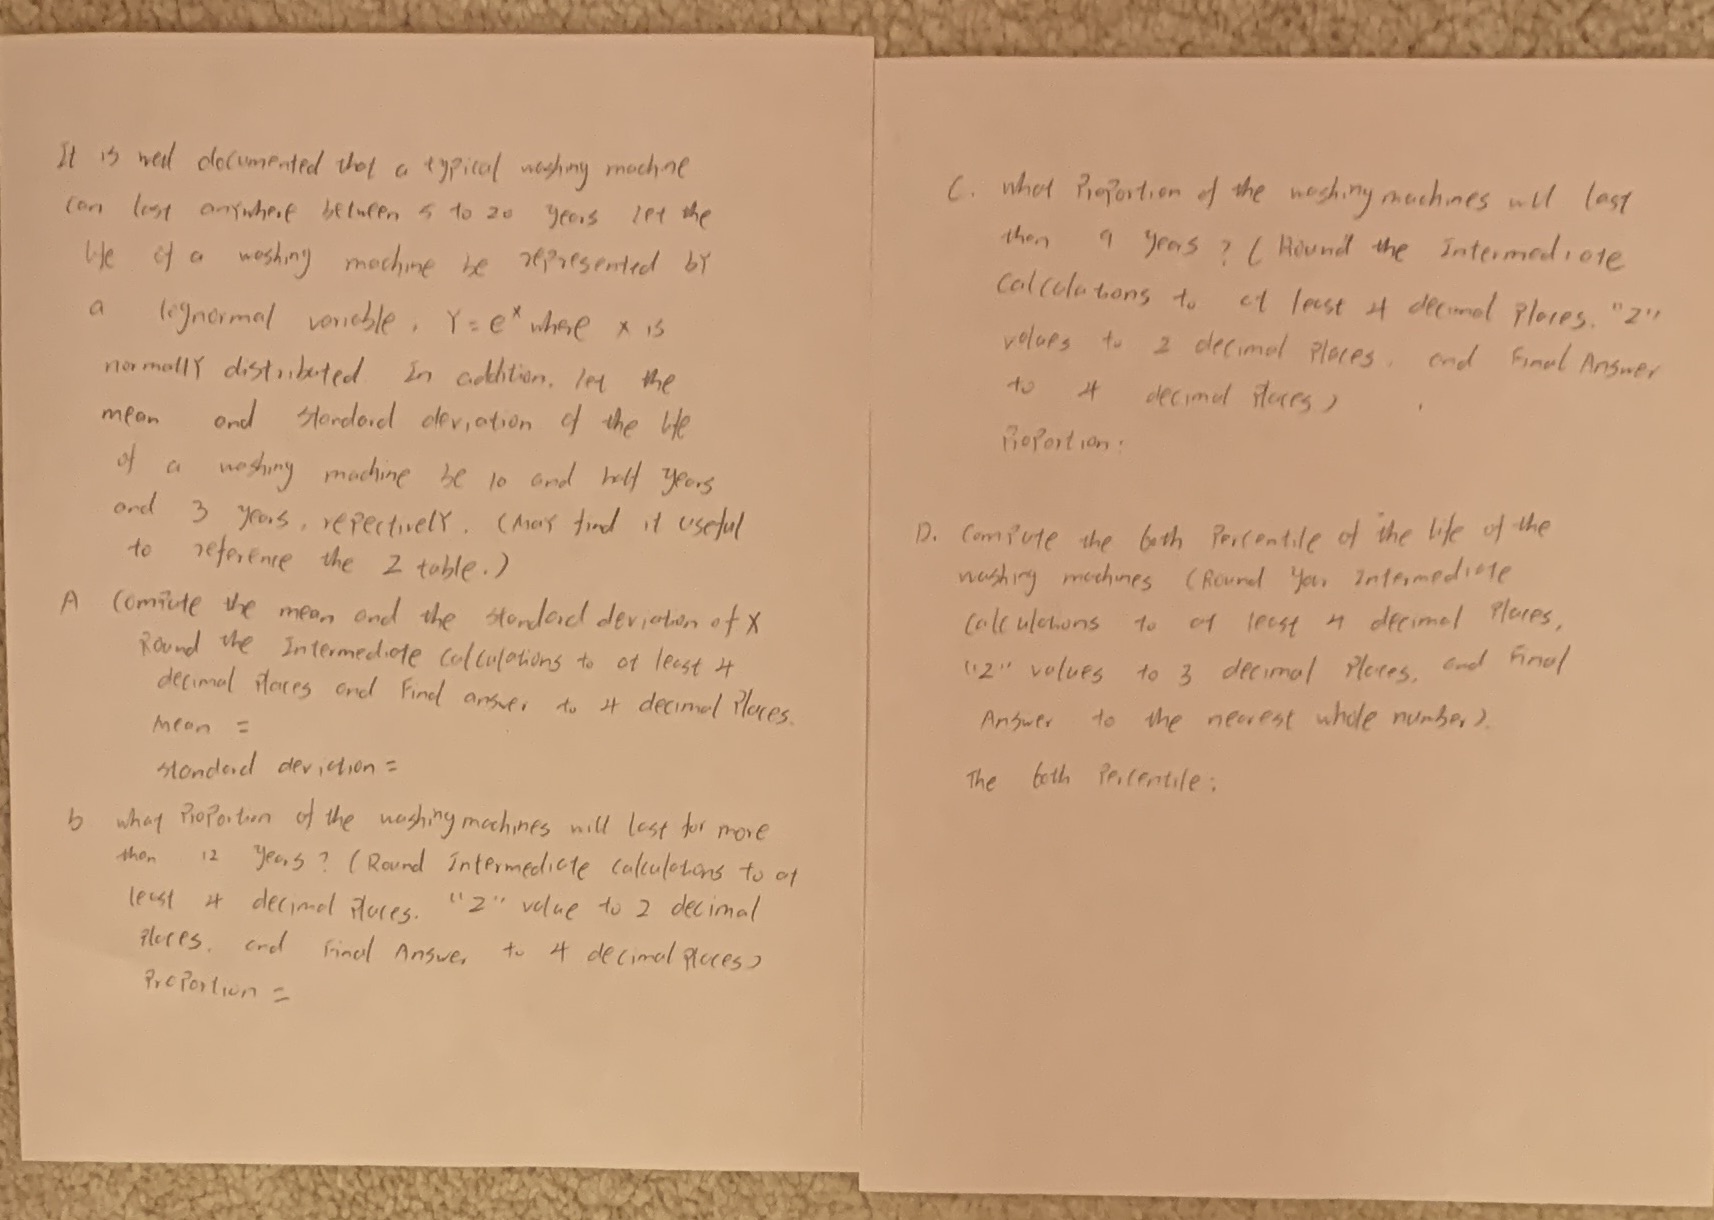 It is well documented that a typical washing machine
can last anywhere between 5 to 20 years let the
life of a washing machine be represented by
a lognormal variable, Y = e^x where x is
normally distributed In addition, let the
mean and standard deviation of the life
of a washing machine be 10 and half years
and 3 years, repectively. (May find it useful
to reference the Z table.)
A Compute the mean and the standard deviation of X
Round the Intermediate calculations to at least 4
decimal places and Final answer to 4 decimal places.
Mean =
standard deviation =
b what Proportion of the washing machines will last for more
than 12 years? (Round Intermediate calculations to at
least 4 decimal places. "Z" value to 2 decimal
places, and Final Answer to 4 decimal places)
Proportion =
C. what Proportion of the washing machines will last
then 9 years? (Round the Intermediate
Calculations to at least 4 decimal places. "Z"
values to 2 decimal places, and Final Answer
to 4 decimal places)
Proportion:
D. Compute the 60th Percentile of the life of the
washing machines (Round your Intermediate
calculations to at least 4 decimal places,
"Z" values to 3 decimal places, and Final
Answer to the nearest whole number).
The 60th Percentile: